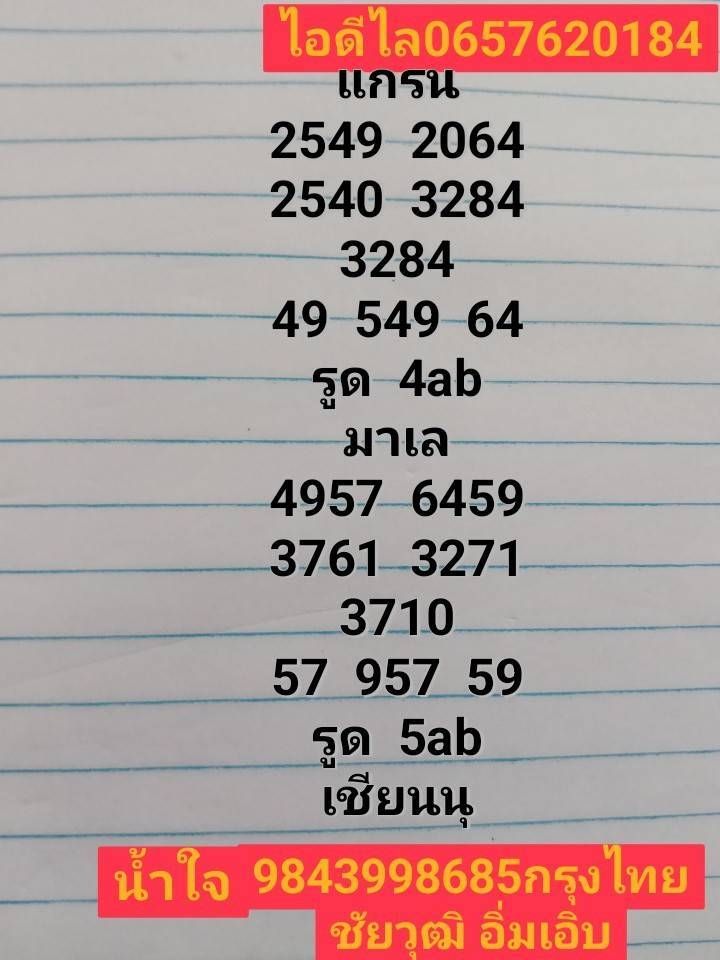 ไอดีไล0657620184
แกรน
2549 2064
2540 3284
3284
49 549 64
รูด 4ab
มาเล
4957 6459
3761 3271
3710
57 957 59
รูด 5ab
เซียนนุ
น้ำใจ 9843998685กรุงไทย
ชัยวุฒิ อิ่มเอิบ